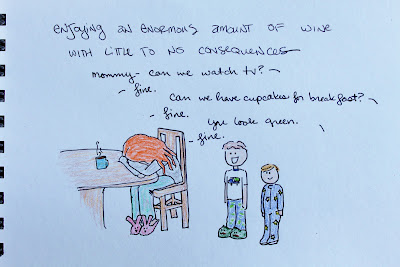 enjoying an enormous amount of wine
with little to no consequences
mommy- can we watch tv?
- fine.
can we have cupcakes for breakfast?
- fine.
you look green.
- fine.